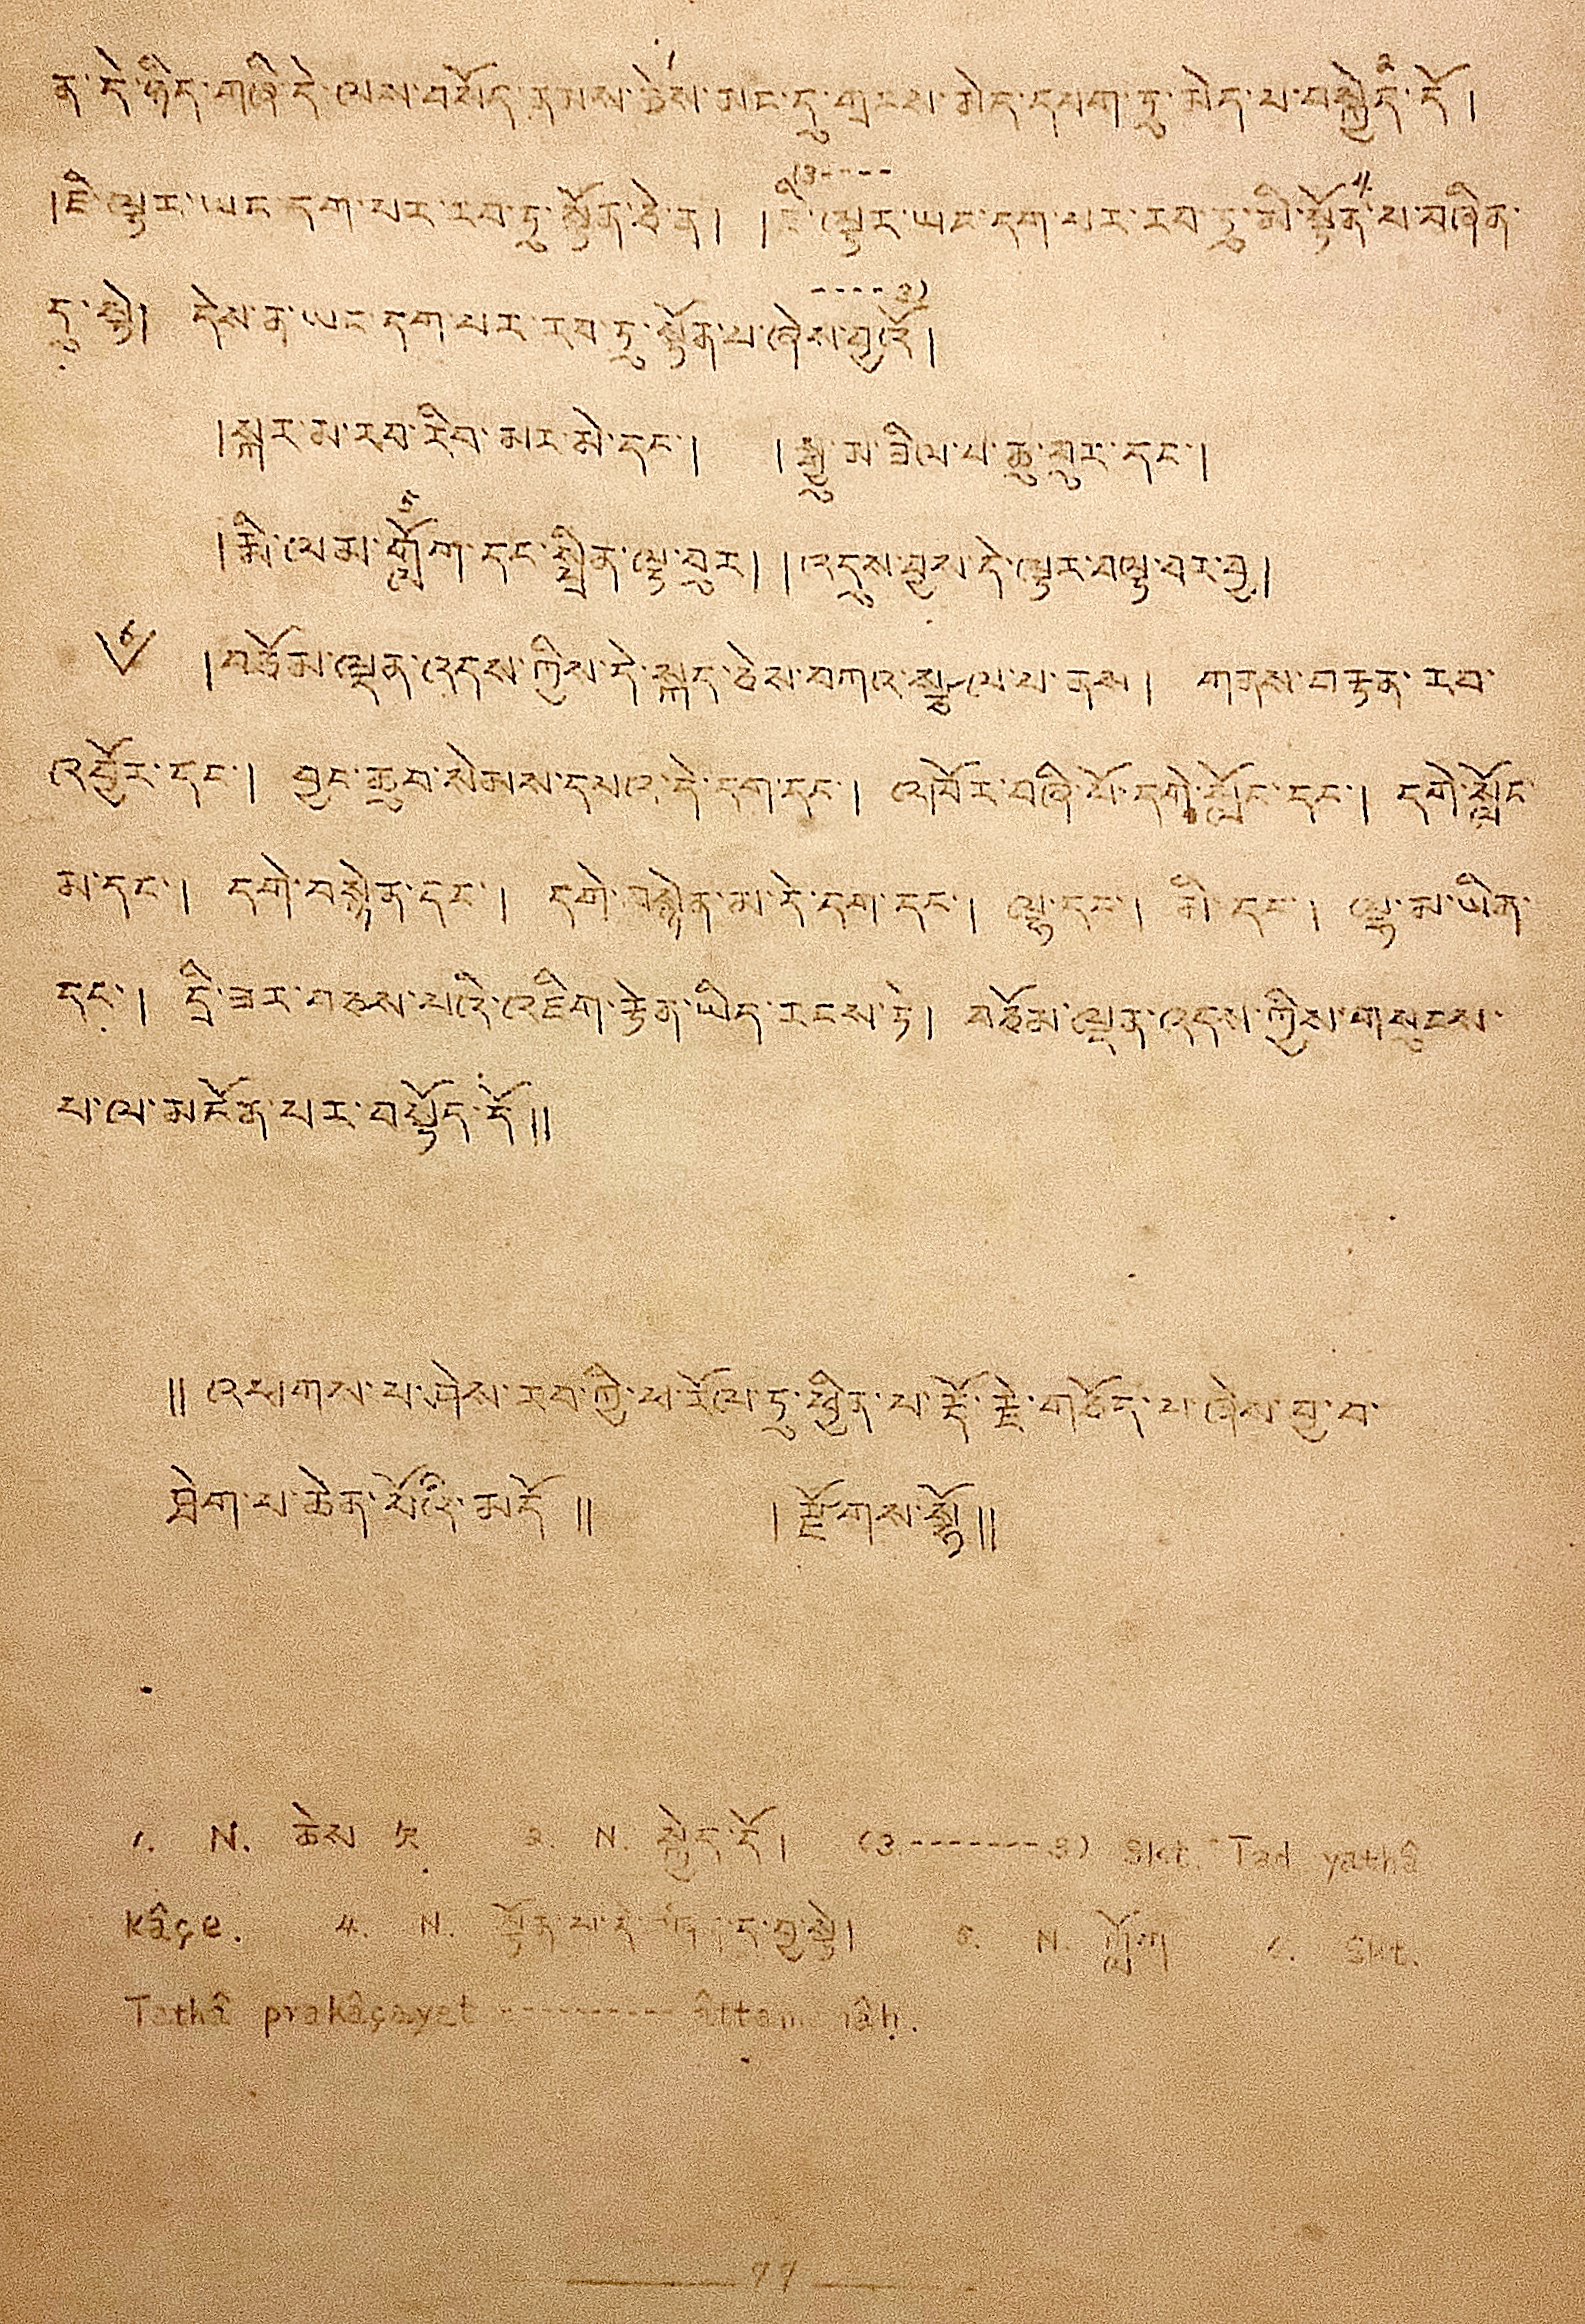 ན་དེ་ཉིད་གཞི་དེ་ལས་བསོད་ནམས་ཆེས་1མང་དུ་གྲངས་མེད་དཔག་ཏུ་མེད་པ་བསྐྱེད་2དོ།
།ཇི་ལྟར་ཡང་དག་པར་རབ་ཏུ་སྟོན་ཅེ་ན། །(3----ཇི་ལྟར་ཡང་དག་པར་རབ་ཏུ་མི་སྟོན་4པ་བཞིན་
དུ་སྟེ། དེས་ན་ཡང་དག་པར་རབ་ཏུ་སྟོན་པ་ཞེས་བྱའོ----3)།
།སྐར་མ་རབ་རིབ་མར་མེ་དང་། །སྒྱུ་མ་ཟིལ་པ་ཆུ་བུར་དང་།
།རྨི་ལམ་གློག་5དང་སྤྲིན་ལྟ་བུར། །འདུས་བྱས་དེ་ལྟར་བལྟ་བར་བྱ།
6 །བཅོམ་ལྡན་འདས་ཀྱིས་དེ་སྐད་ཅེས་བཀའ་སྩལ་པ་ནས། གནས་བརྟན་རབ་
འབྱོར་དང་། བྱང་ཆུབ་སེམས་དཔའ་དེ་དག་དང་། འཁོར་བཞི་པོ་དགེ་སློང་དང་། དགེ་སློང
མ་དང་། དགེ་བསྙེན་དང་། དགེ་བསྙེན་མ་དེ་དག་དང་། ལྷ་དང་། མི་དང་། ལྷ་མ་ཡིན་
དང་། དྲི་ཟར་བཅས་པའི་འཇིག་རྟེན་ཡིད་རངས་ཏེ། བཅོམ་ལྡན་འདས་ཀྱིས་གསུངས་
པ་ལ་མངོན་པར་བསྟོད་དོ༎
༎འཕགས་པ་ཤེས་རབ་ཀྱི་ཕ་རོལ་ཏུ་ཕྱིན་པ་རྡོ་རྗེ་གཅོད་པ་ཞེས་བྱ་བ་
ཐེག་པ་ཆེན་པོའི་མདོ༎ །རྫོགས་སྷོ༎
1. N. ཆེས 欠 2. N. སྐྱེད་དོ། (3-------3) Skt. Tad yathâ
kâçe. 4. N. སྟོན་པ་དེ་བཞིན་དུ་སྟེ། 5. N. གློག 6. Skt.
Tathâ prakâçayet ---------- âttamanâḥ.
77